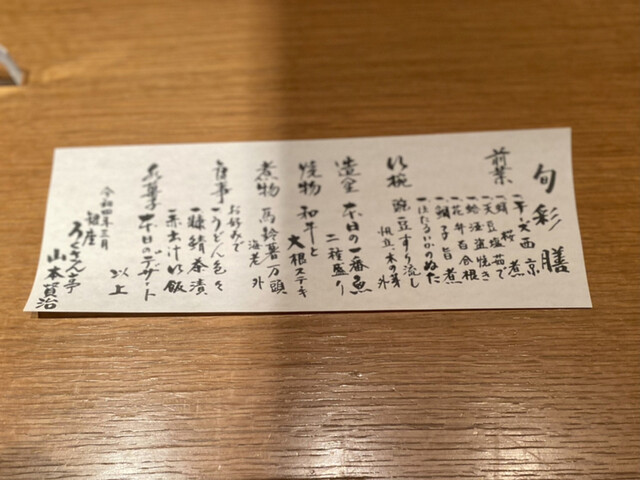 旬彩膳
前菜
一 チーズ西京
一 蛸桜煮
一 天豆塩茹で
一 蛤酒盗焼き
一 花弁百合根
一 鯛子旨煮
一 ほたるいかのぬた
吸椀 豌豆すり流し
帆立、木の芽
造里 本日の一番魚
二種盛り
焼物 和牛と
大根ステーキ
煮物 馬鈴薯万頭
海老 外
食事 お好みで
一 うどん色々
一 糠鯖茶漬
一 赤出汁 御飯
水菓子 本日のデザート
以上
令和四年三月
銀座
ろくさん亭
山本賢治